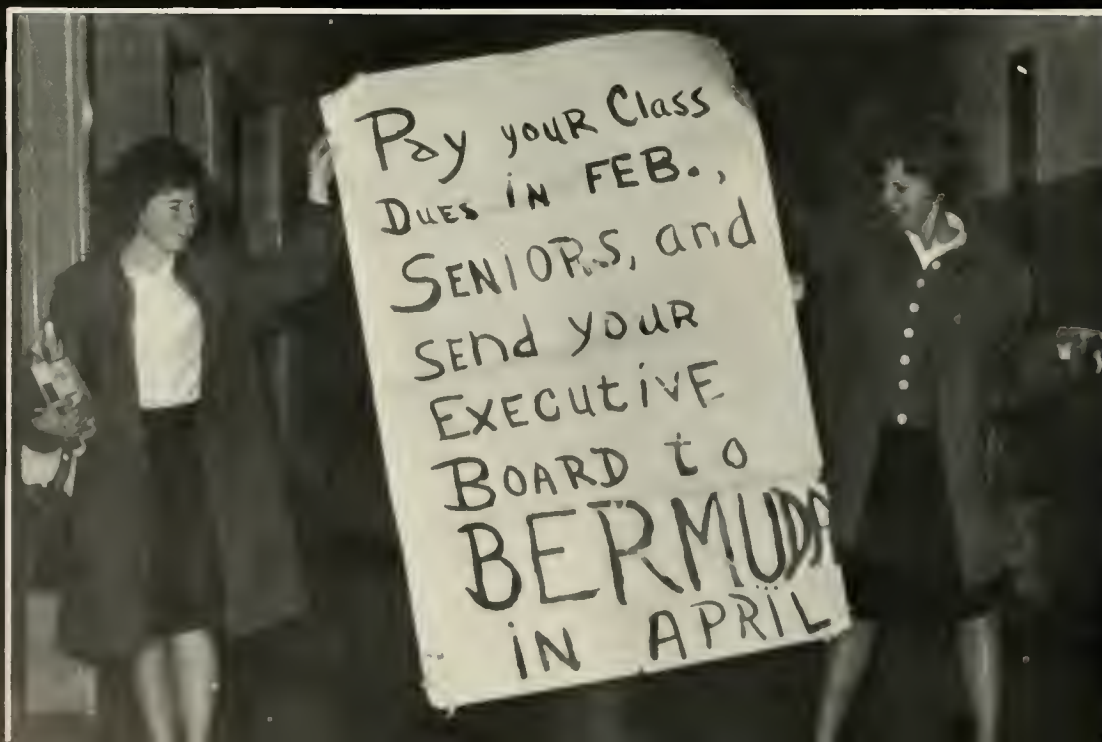 Pay youR Class
Dues in FEB.,
SENIORS, and
send youR
EXECutivE
BOARD to
BERMUDA
in APRIL